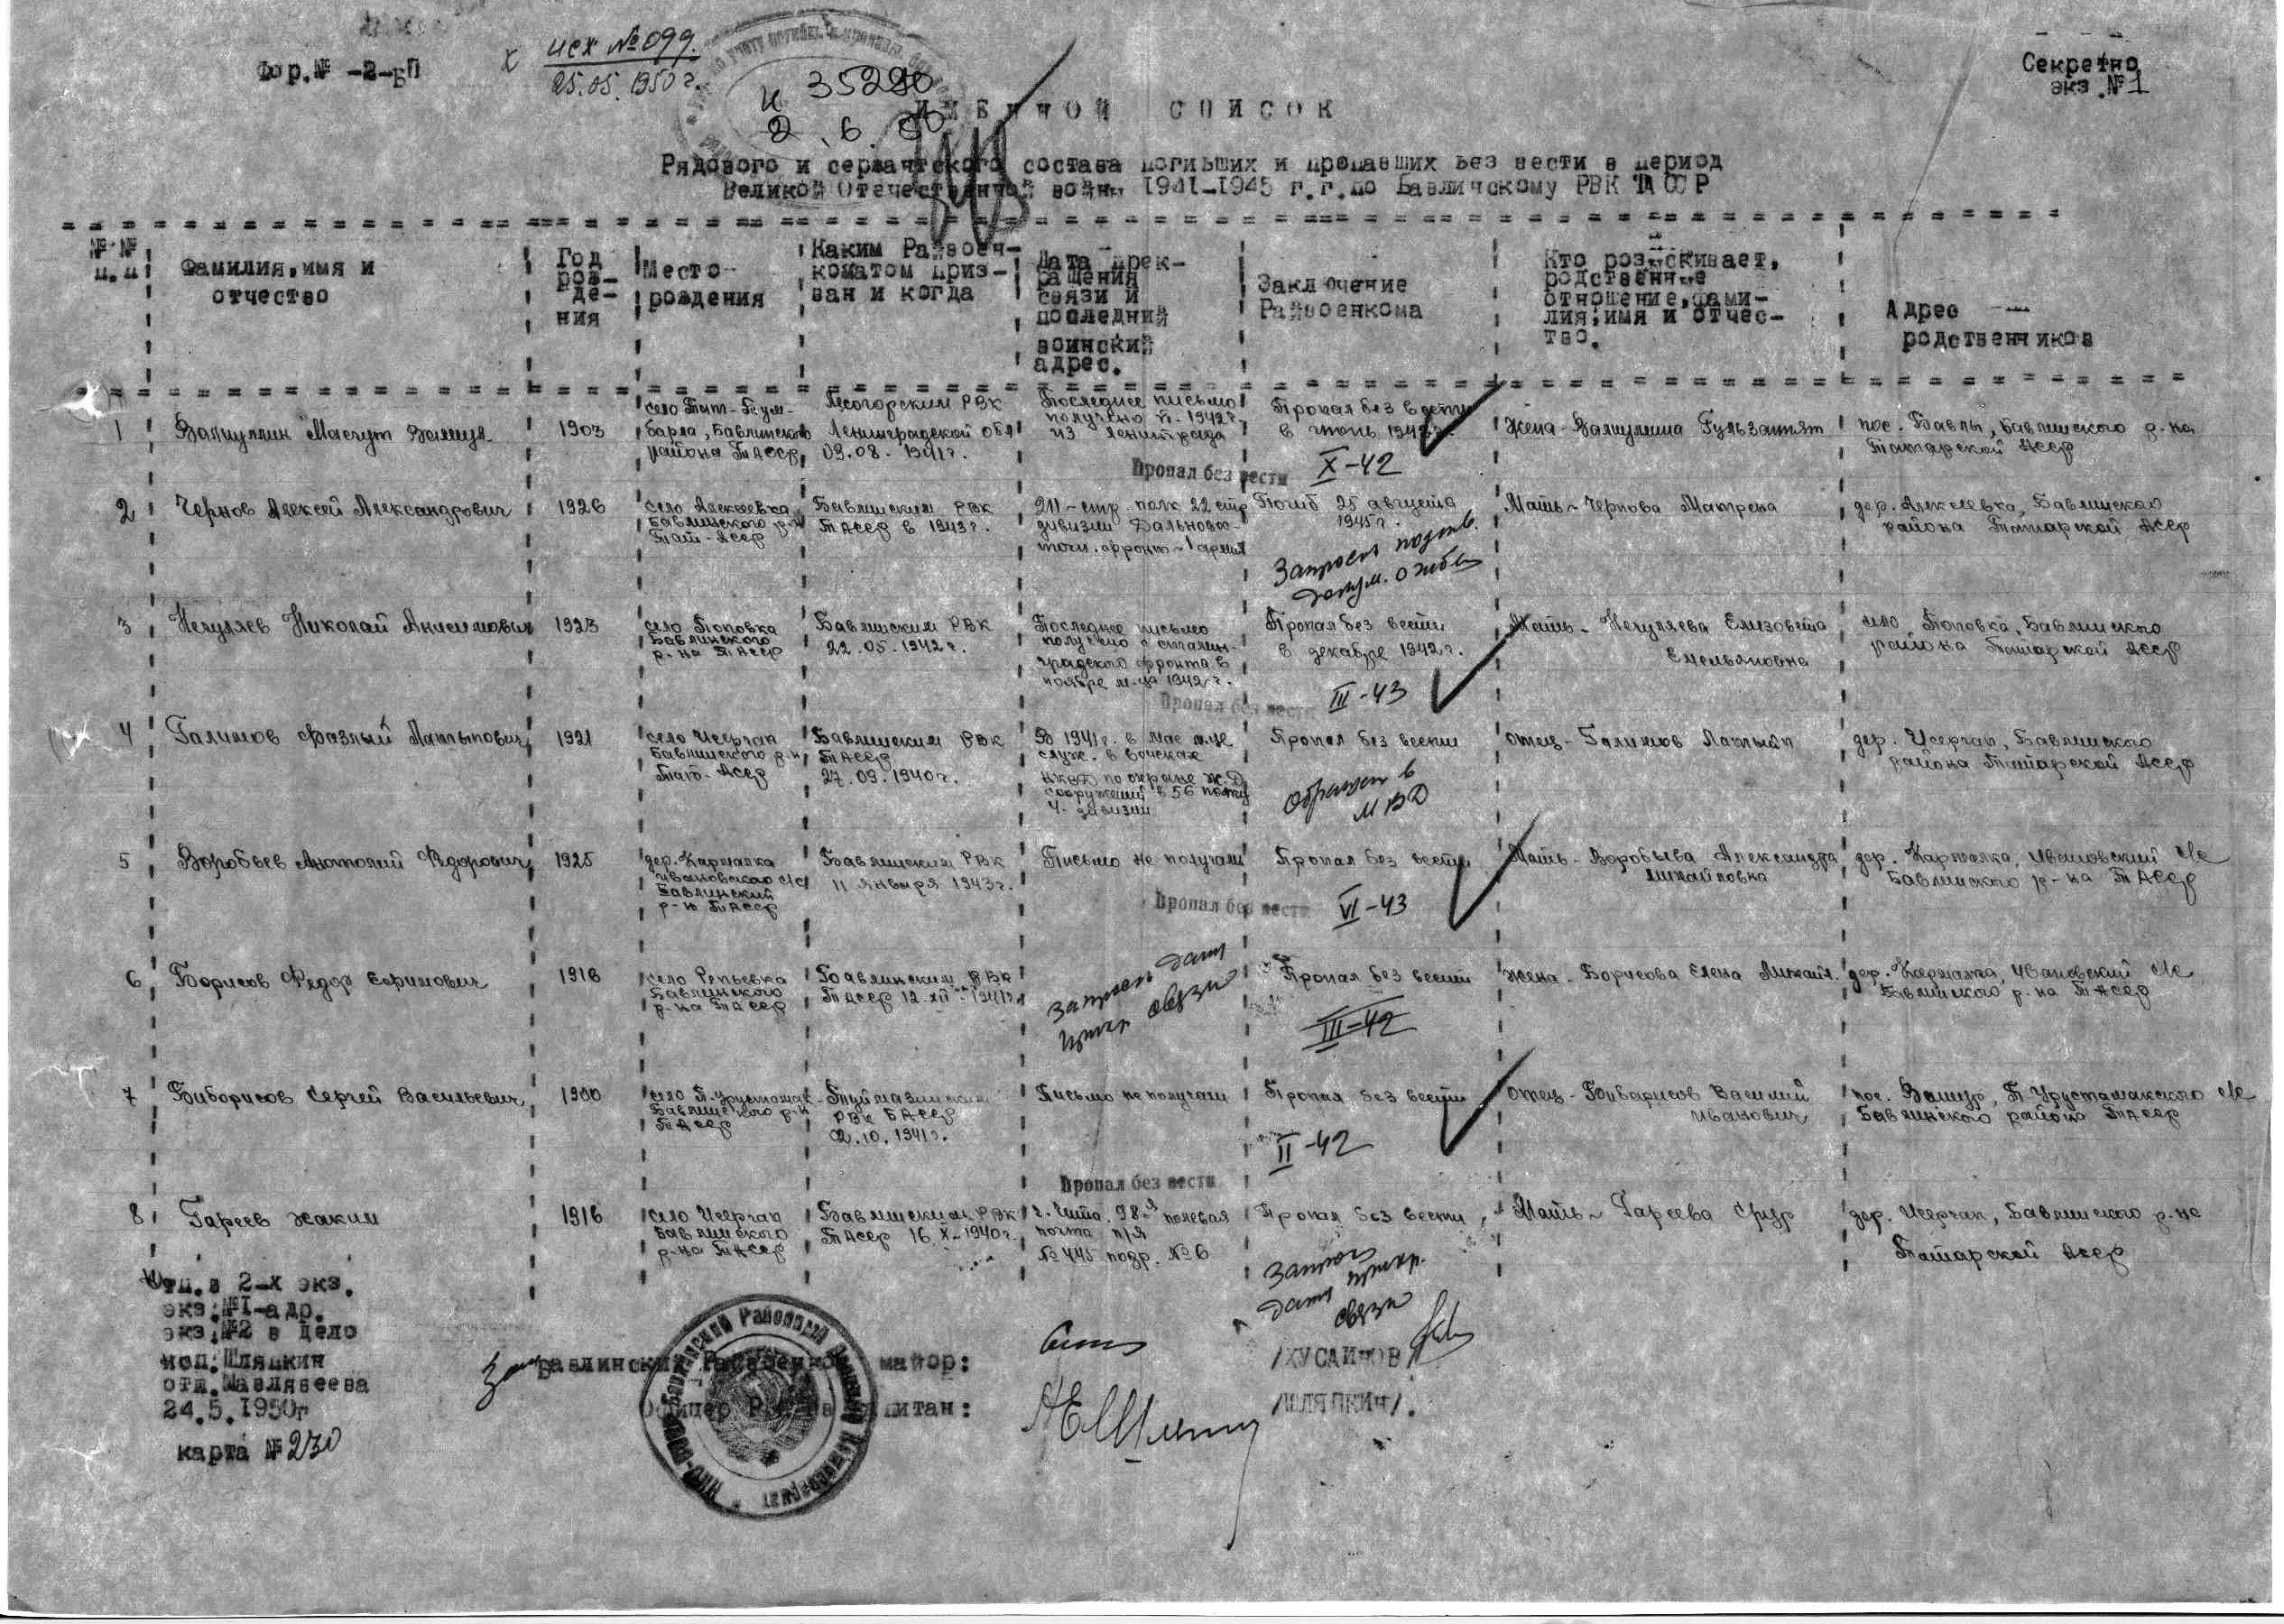 Фор.№ -2-БП
исх №099.
25.05.1950г.
Секретно
экз.№1
И 35290
2.6.50
ИМЕННОЙ СПИСОК
Рядового и сержантского состава погибших и пропавших без вести в период
Великой Отечественной войны 1941-1945 г.г.по Бавлинскому РВК ТАССР
№ №
п.п
Фамилия,имя и
отчество
Год
рож-
де-
ния
Место
рождения
Каким Райвоен-
коматом приз-
ван и когда
Дата прек-
ращения
связи и
последний
воинский
адрес.
Заключение
Райвоенкома
Кто розыскивает,
родственные
отношение,фами-
лия,имя и отчес-
тво.
Адрес
родственников
1
Валиуллин Масгут Валиул.
1903
село Тат-Кум-
барла, Бавлинского
района ТАССР
Лесогорским РВК
Ленинградской обл
09.08.1941г.
Последнее письмо
получено 1942г.
из Ленинграда
Пропал без вести
в июнь 1942г.
Пропал без вести
X-42
Жена-Валиулина Гульзайнят
пос. Бавлы, Бавлинского р-на
Татарской АССР
2
Чернов Алексей Александрович
1926
село Алексеевка
Бавлинского р-н
Тат-АССР
Бавлинским РВК
ТАССР в 1943г.
211-стр. полк 22 стр
дивизии Дальнево-
сточн. фронт-1 армия
Погиб 25 августа
1945г.
Запросить подтв.
докум. о гибели
Мать-Чернова Матрена
дер. Алексеевка, Бавлинского
района Татарской АССР
3
Негуляев Николай Анисимович
1923
село Поповка
Бавлинского
р-на ТАССР
Бавлинским РВК
22.05.1942г.
Последнее письмо
получено с сталин-
градского фронта в
ноябре м-це 1942г.
Пропал без вести
в декабре 1942г.
Пропал без вести
III-43
Мать-Негуляева Елизовета
Емельяновна
село Поповка, Бавлинского
района Татарской АССР
4
Галимов Фазлый Латыпович
1921
село Исергап
Бавлинского р-н
Тат-АССР
Бавлинским РВК
ТАССР
27.09.1940г.
В 1941г. в мае м-це
служ. в войсках
НКВД по охране Ж.Д.
сооружений в 56 полку
4-дивизии
Пропал без вести
Обращат в
МВД
Отец-Галимов Латыйп
дер. Исергап, Бавлинского
района Татарской АССР
5
Воробьев Анатолий Федорович
1925
дер. Кармалка
Ивановского с/с
Бавлинский
р-н ТАССР
Бавлинским РВК
11 января 1943г.
Письмо не получали
Пропал без вести
Пропал без вести
VI-43
Мать-Воробьева Александра
Михайловна
дер. Кармалка, Ивановский с/с
Бавлинского р-на ТАССР
6
Борисов Федор Ефимович
1916
село Репьевка
Бавлинского
р-на ТАССР
Бавлинским РВК
ТАССР 12-XII-1941г.
Запросить дату
прекр. связи
Пропал без вести
III-42
Жена-Борисова Елена Михайл.
дер. Кармалка, Ивановский с/с
Бавлинского р-на ТАССР
7
Биборисов Сергей Васильевич
1900
село П.Урустамак
Бавлинского р-н
ТАССР
Туймазинским
РВК БАССР
02.10.1941г.
Письмо не получали
Пропал без вести
II-42
Пропал без вести
Отец-Бибарисов Василий
Иванович
пос. Ватур, П.Урустамакского с/с
Бавлинского района ТАССР
8
Гареев Хаким
1916
село Исергап
Бавлинского
р-на ТАССР
Бавлинским РВК
ТАССР 16.X-1940г.
г. Чита. 98-я полевая
почта п/я
№ 445 подр. №6
Пропал без вести
Запрос
дату прекр.
связи
Мать-Гареева
дер. Исергап, Бавлинского р-на
Татарской АССР
Отп.в 2-х экз.
экз.№1-адр.
экз.№2 в дело
исп.Шляпкин
отп.Мавлявеева
24.5.1950г
карта №230
Бавлинский Райвоенком майор:
/ХУСАИНОВ/
Офицер РВК капитан:
/ШЛЯПКИН/.